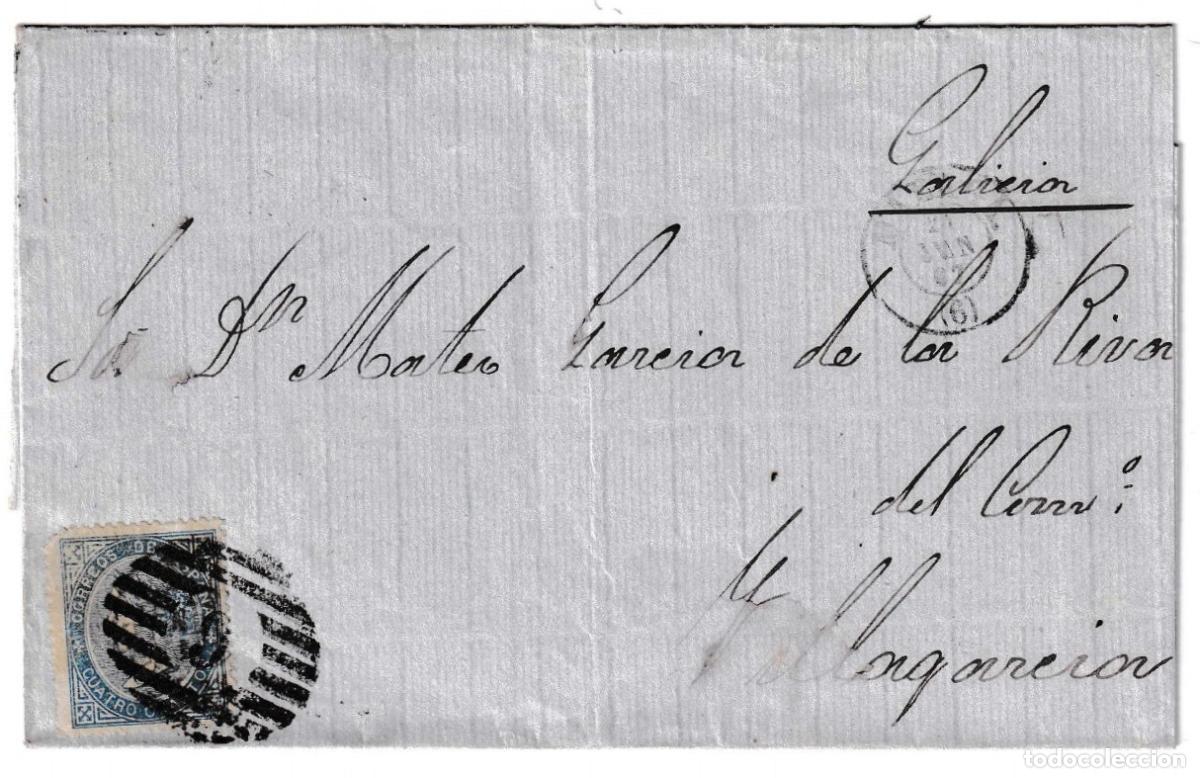 Galicia
27
JUN
67
(6)
Sr. Dn Mateo Garcia de la Riva
del Comº.
Villagarcia
CORREOS DE ESPAÑA
CUATRO CUARTOS
todocoleccion